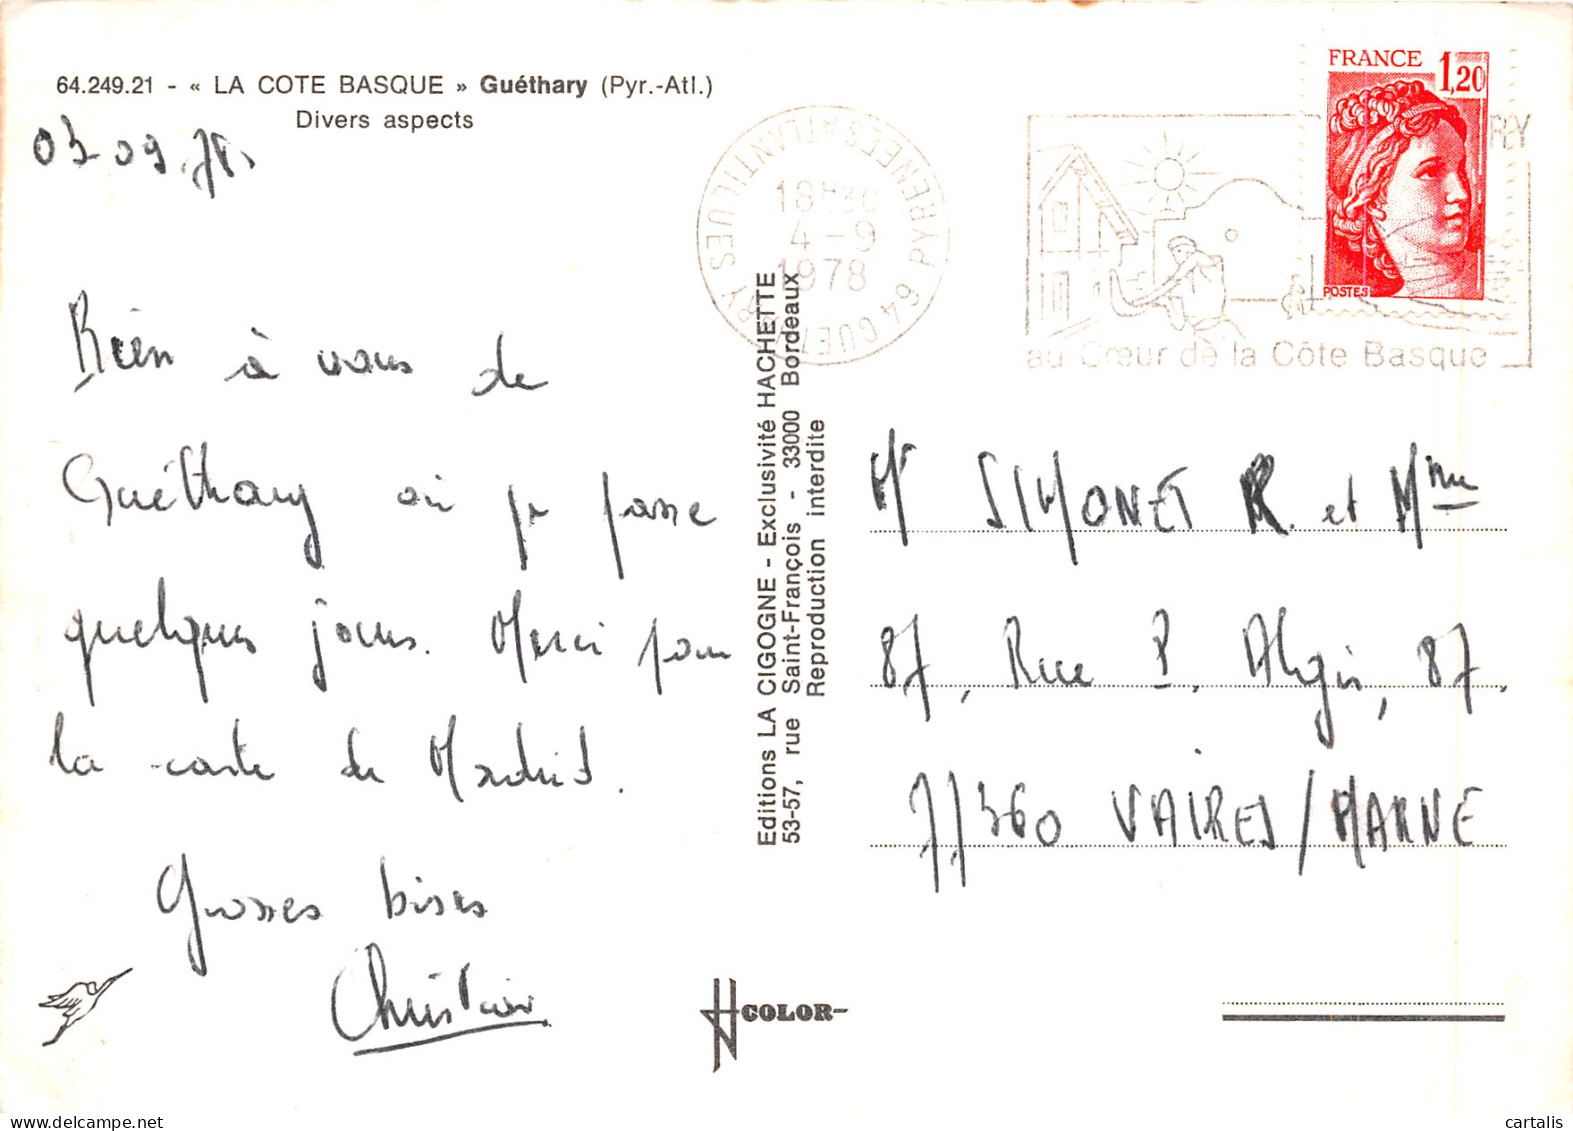 64.249.21 - « LA COTE BASQUE » Guéthary (Pyr.-Atl.)
Divers aspects
03-09.78.
Bien à vous de
Guéthary où je passe
quelques jours. Merci pour
la carte de Madrid.
Grosses bises
Christian
Editions LA CIGOGNE - Exclusivité HACHETTE
53-57, rue Saint-François - 33000 Bordeaux
Reproduction interdite
COLOR
64 GUETHARY PYRENEES ATLANTIQUES
18H30
4-9
1978
au Cœur de la Côte Basque
FRANCE 1,20
POSTES
Mr SIMONET R. et Mme
87, Rue P. Algis, 87.
77360 VAIRES/MARNE
cartalis